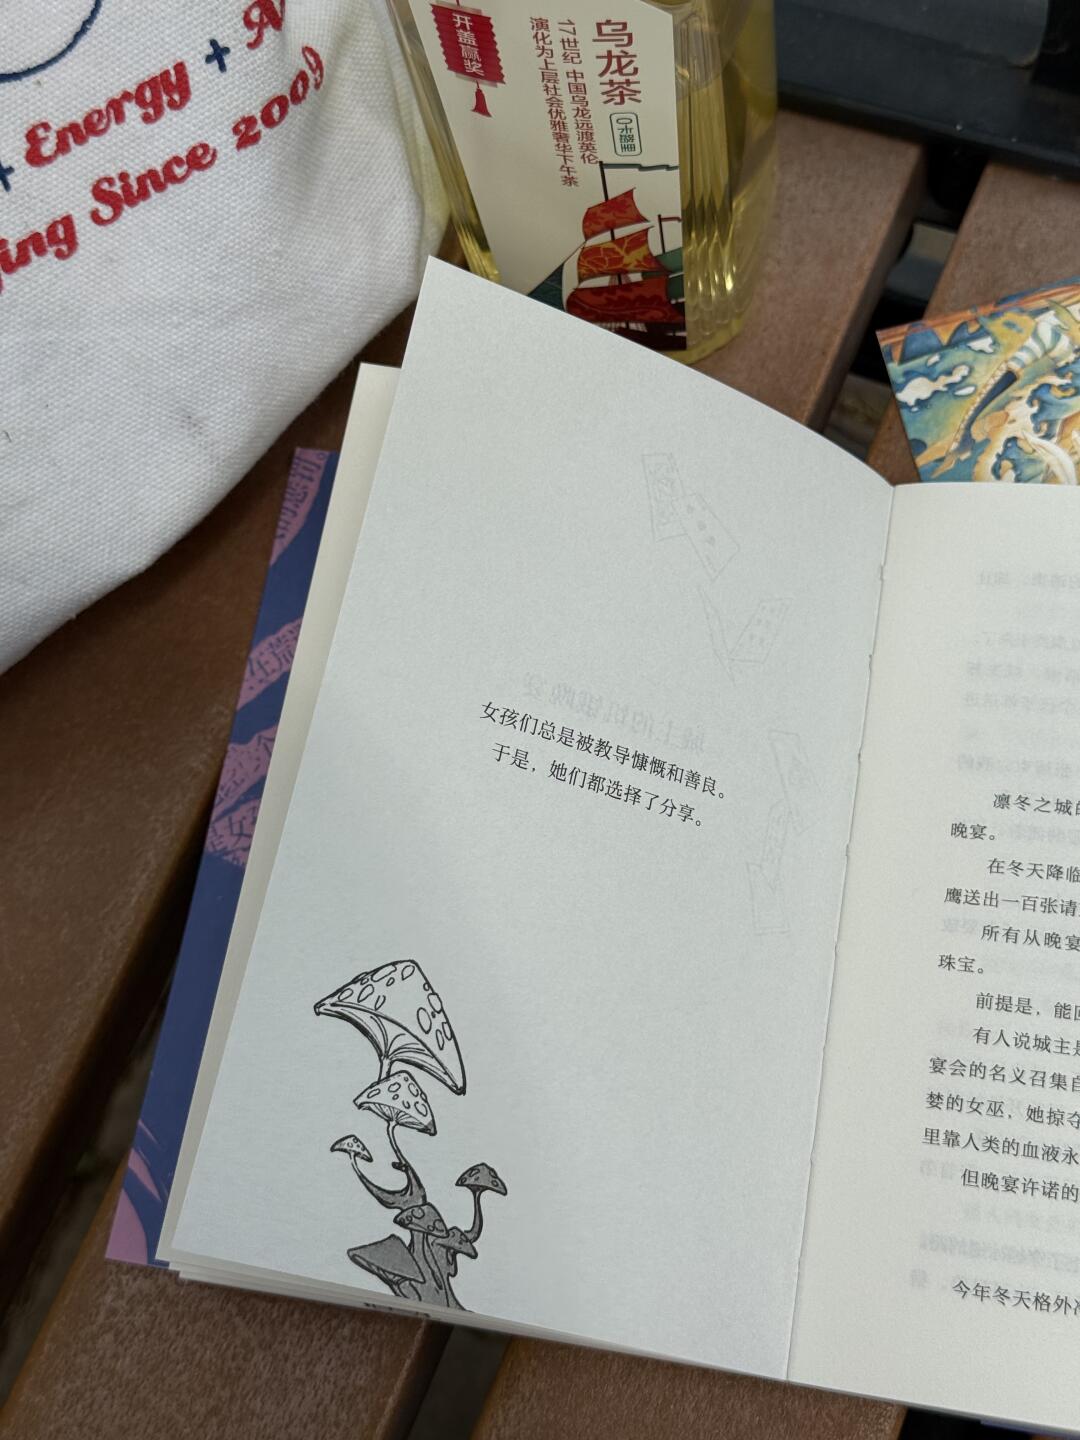 + Energy + A
ing Since 2001
开盖赢奖
乌龙茶
17世纪 中国乌龙远渡英伦
演化为上层社会优雅奢华下午茶
女孩们总是被教导慷慨和善良。
于是，她们都选择了分享。
凛冬之城的
晚宴。
在冬天降临
鹰送出一百张请
所有从晚宴
珠宝。
前提是，能回
有人说城主是
宴会的名义召集自
婪的女巫，她掠夺
里靠人类的血液永
但晚宴许诺的
今年冬天格外冷